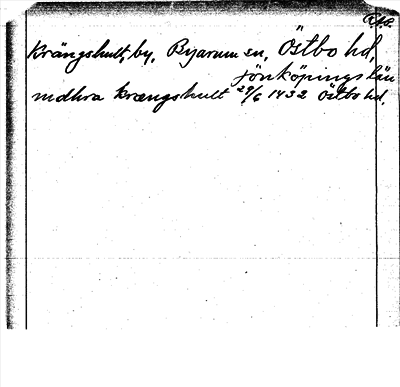 Krängshult, by, Byarum sn, Östbo hd,
Jönköpings län
nidhra krængshult 29/6 1432 Östbo hd.